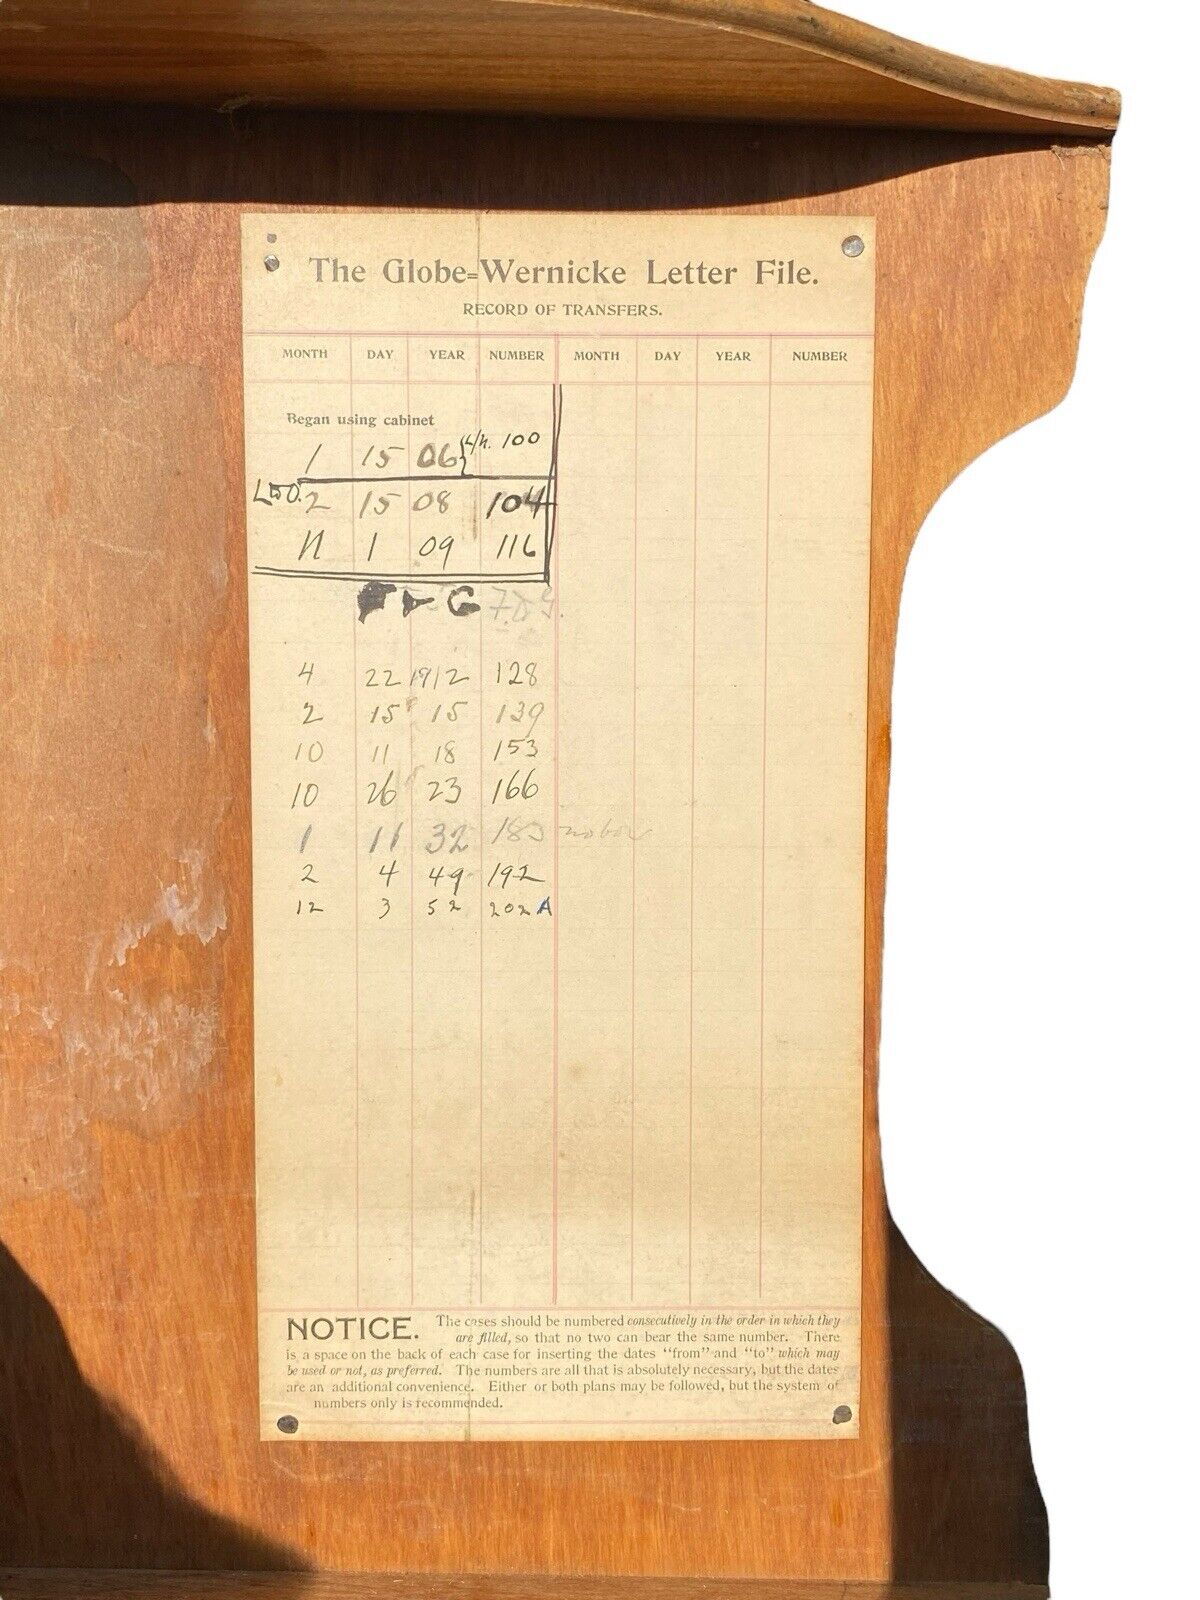 The Globe=Wernicke Letter File.
RECORD OF TRANSFERS.
MONTH DAY YEAR NUMBER MONTH DAY YEAR NUMBER
Began using cabinet
1 15 06 100
2 15 08 104
11 1 09 116
4 22 1912 128
2 15 15 139
10 11 18 153
10 26 23 166
1 11 32 183
2 4 49 192
12 3 52 202A
NOTICE. The cases should be numbered consecutively in the order in which they
are filled, so that no two can bear the same number. There
is a space on the back of each case for inserting the dates "from" and "to" which may
be used or not, as preferred. The numbers are all that is absolutely necessary, but the dates
are an additional convenience. Either or both plans may be followed, but the system of
numbers only is recommended.